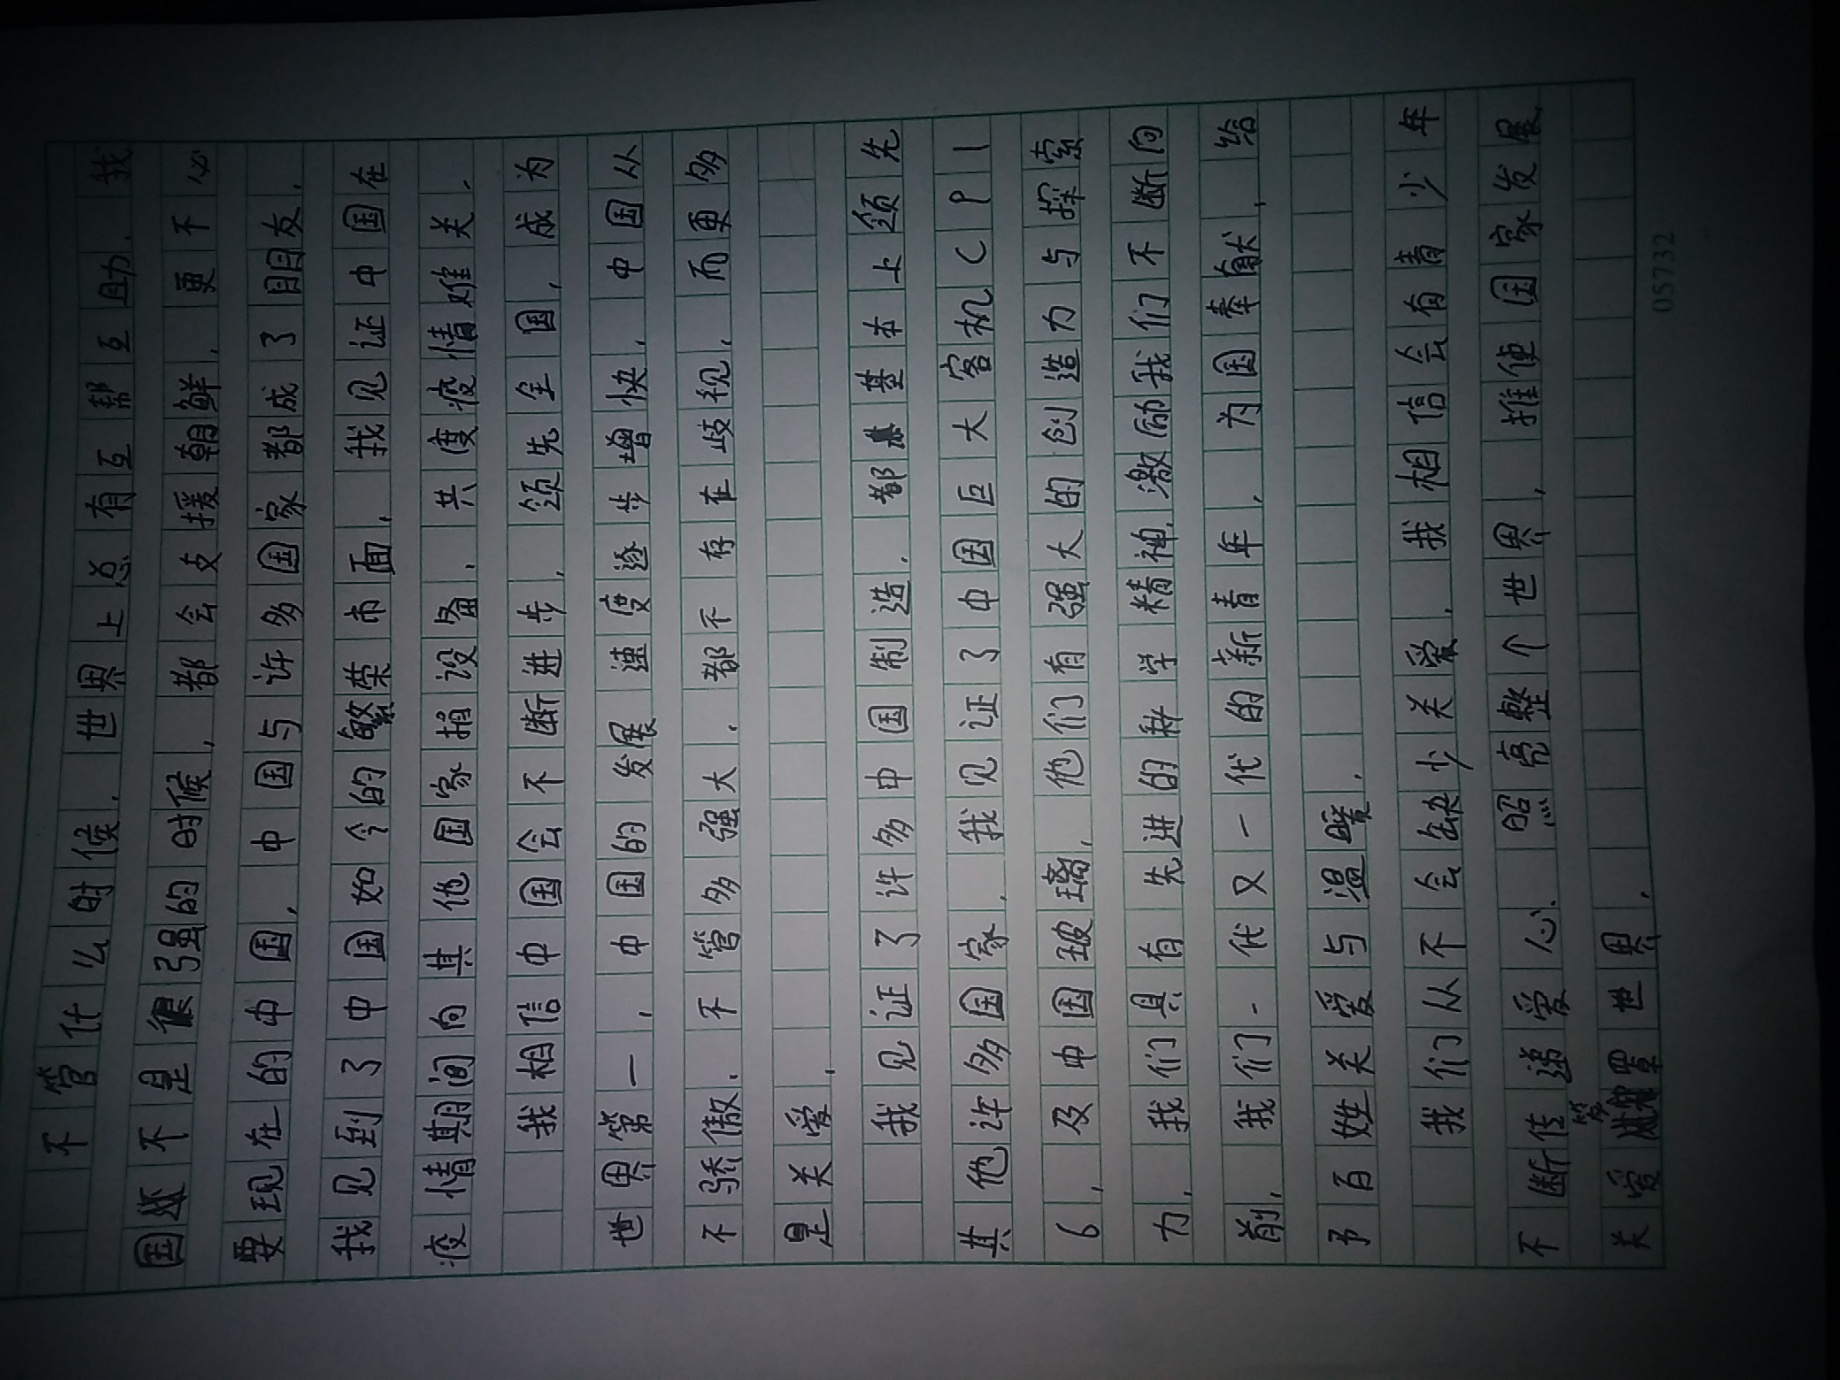 不管什么时候，世界上总有互帮互助，我
国还不是很强的时候，都会支援朝鲜，更不必
要现在的中国，中国与许多国家都成了朋友，
我见到了中国如今的繁荣市面，我见证中国在
疫情期间向其他国家捐设备，共度疫情难关，
我相信中国会不断进步，领先全国，成为
世界第一，中国的发展速度逐步增快，中国从
不骄傲，不管多强大，都不存在歧视，而更多
是关爱，
我见证了许多中国制造，都基本上领先
其他许多国家，我见证了中国巨大客机CP1
6，及中国玻璃，他们有强大的创造力与探索
力，我们具有先进的科学精神，激励我们不断向
前，我们一代又一代的新青年，为国奉献，给
予百姓关爱与温暖，
我们从不会缺少关爱，我相信会有青少年
不断传递爱心，照亮整个世界，推使国家发展，
关爱笼罩世界，
05732